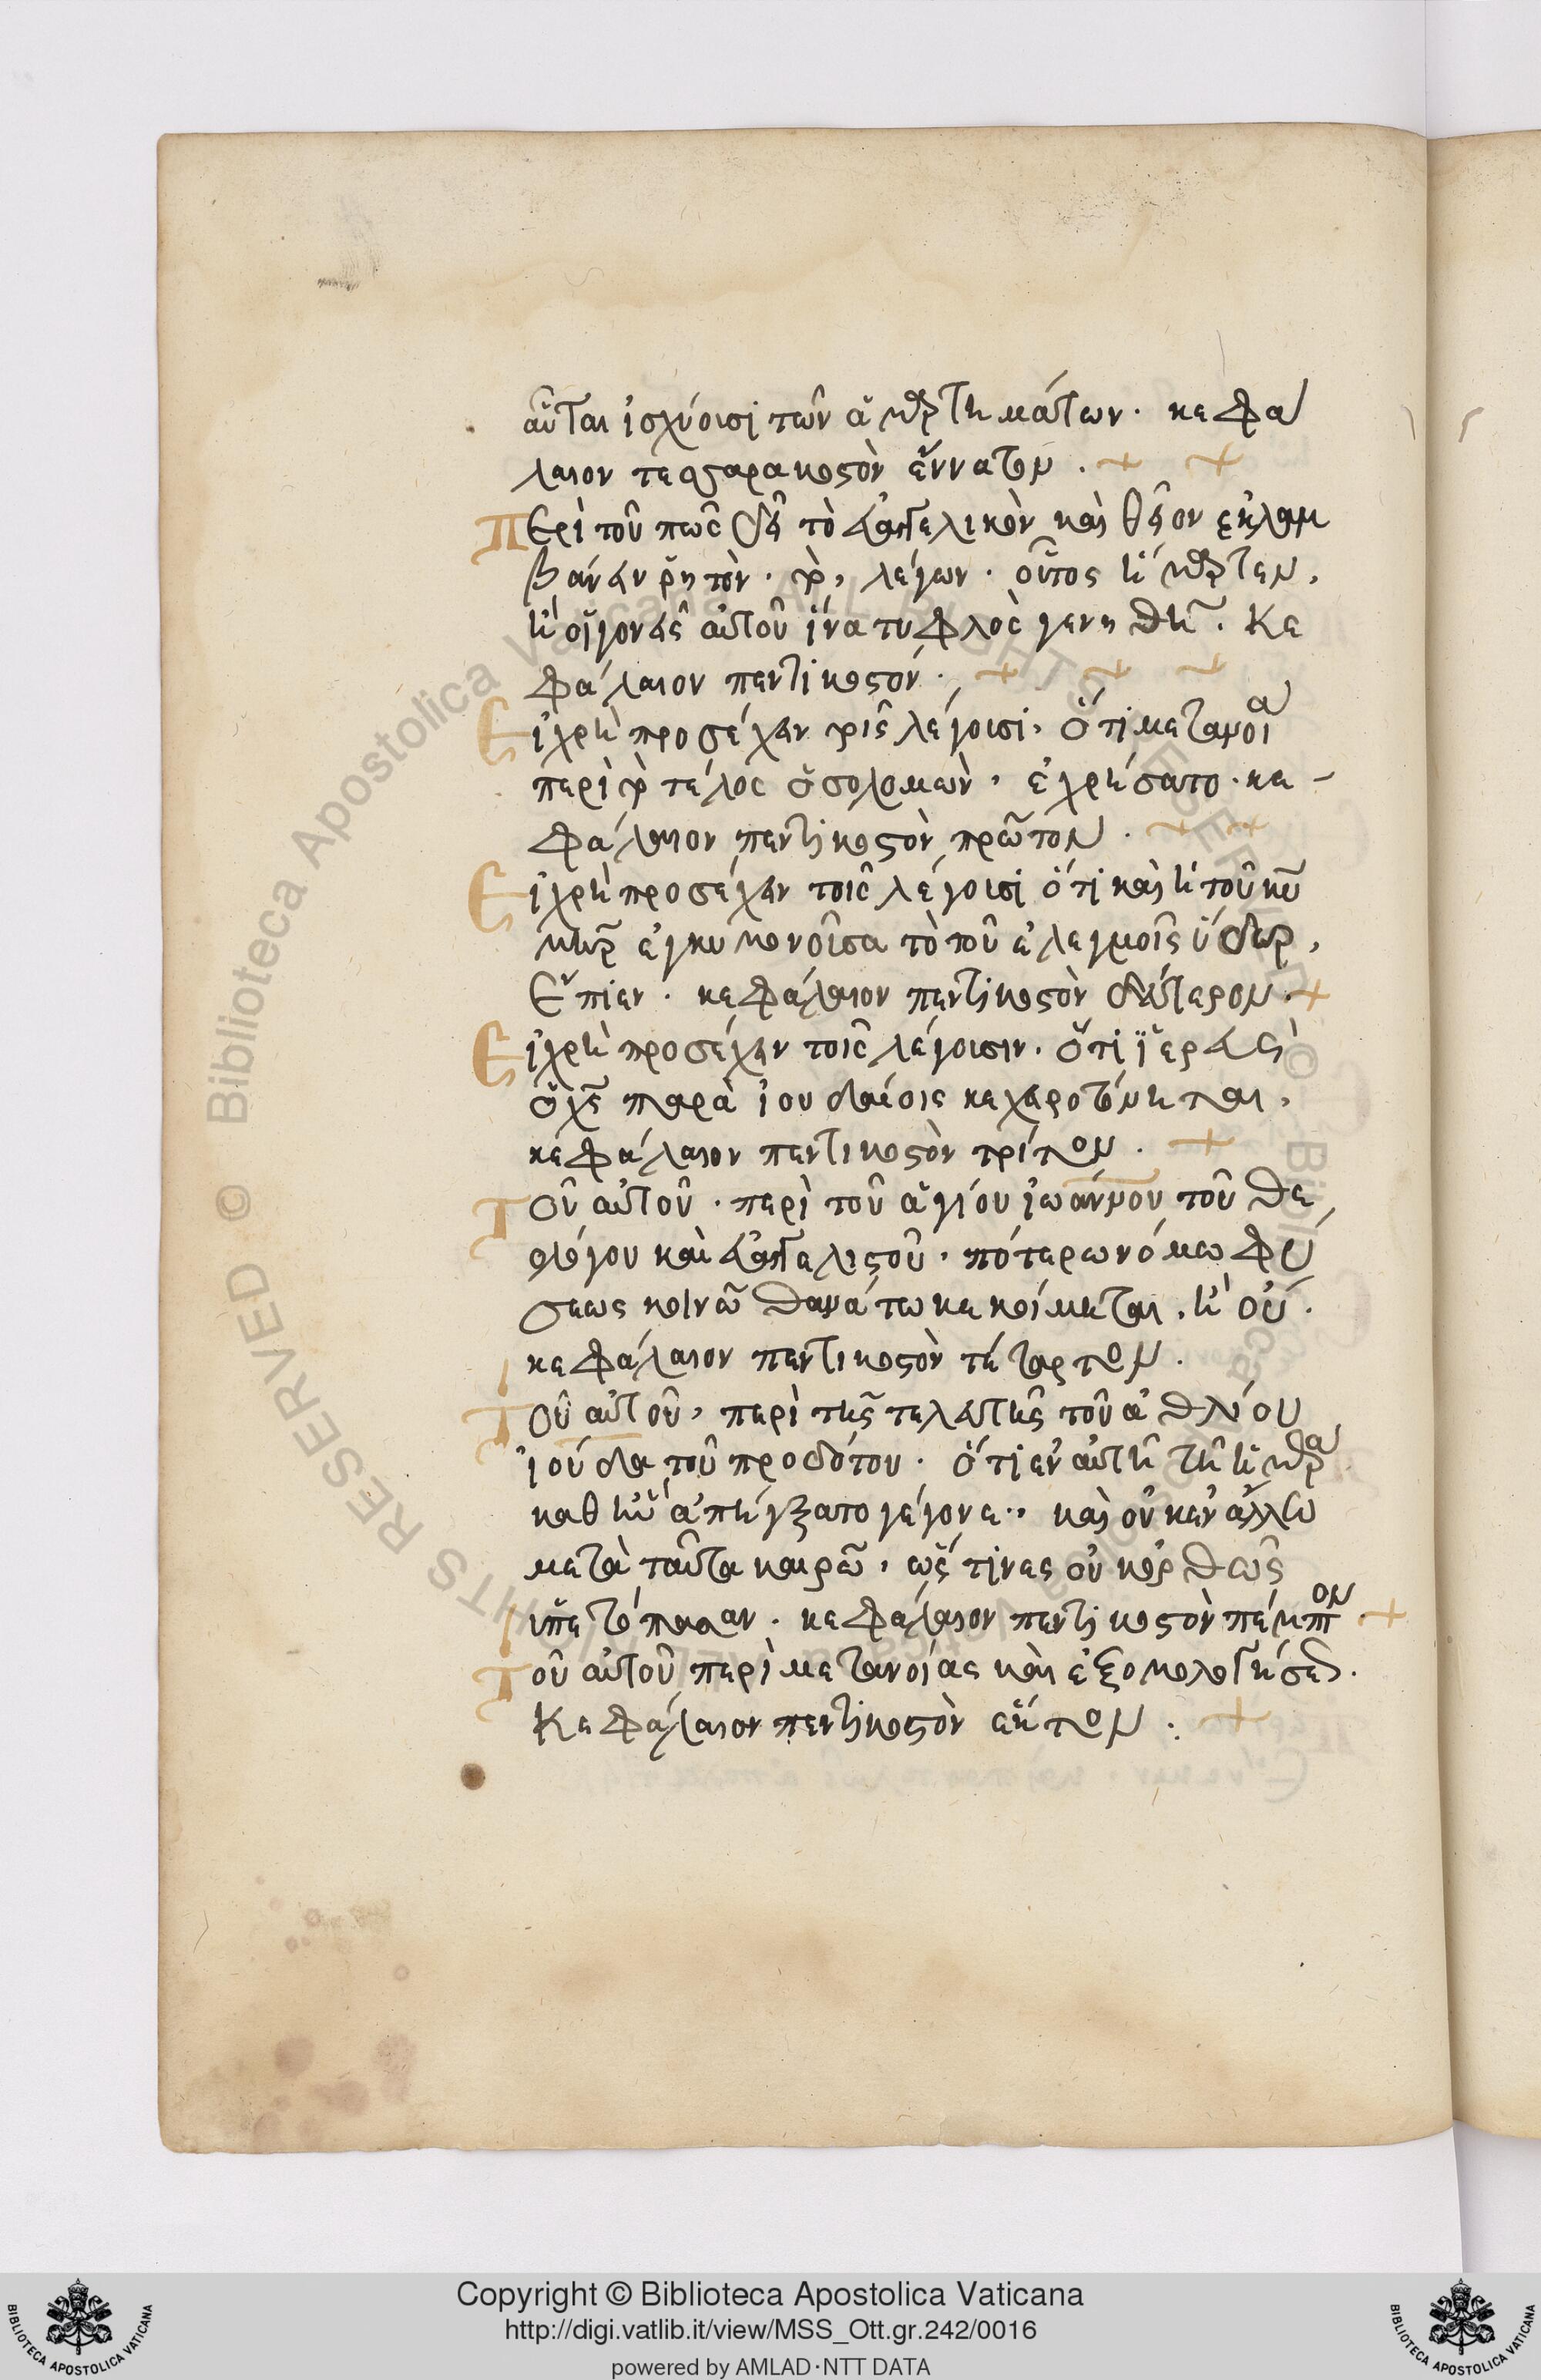 αὗται ἰσχύουσι τῶν ἁμαρτημάτων. κεφα
λαιον τεσσαρακοστὸν ἔννατον.
Περὶ τοῦ πῶς δεῖ τὸ εὐαγγελικὸν καὶ θεῖον ἐκλαμ
βάνειν ῥητὸν. τὸ, λέγων. οὗτος ἥμαρτεν,
ἢ οἱ γονεῖς αὐτοῦ ἵνα τυφλὸς γεννηθῆ. Κε
φάλαιον πεντικοστόν.
Εἰ χρὴ προσέχειν τοῖς λέγουσι, ὅτι μετανοία
περὶ τὸ τέλος ὁ σολομὼν, ἐχρήσατο. κε-
φάλαιον πεντικοστὸν πρῶτον.
Εἰ χρὴ προσέχειν τοῖς λέγουσι ὅτι καὶ ἡ τοῦ κυ
μηρ ἐγκυμονοῦσα τὸ τοῦ ἐλεγμοῦ ὕδωρ,
Ἔπιεν. κεφάλαιον πεντικοστὸν δεύτερον.
Εἰ χρὴ προσέχειν τοῖς λέγουσιν. ὅτι ἱερεὺς
ὁ χς παρὰ ἰουδαίοις κεχειροτόνηται,
κεφάλαιον πεντικοστὸν τρίτον.
Τοῦ αὐτοῦ. περὶ τοῦ ἁγίου ἰωάννου τοῦ θε
ολόγου καὶ εὐαγγελιστοῦ. πότερω νόμω φύ
σεως κοινῶ θανάτω κεκοίμηται. ἢ οὐ.
κεφάλαιον πεντικοστὸν τέταρτον.
Τοῦ αὐτοῦ, περὶ τῆς τελευτῆς τοῦ ἀθλίου
ἰούδα τοῦ προδότου. ὅτι ἐν αὐτῆ τῆ ἡμέρα
καθ ἣν ἀπήγξατο γέγονε. καὶ οὐκ ἐν ἄλλω
μετὰ ταῦτα καιρῶ, ὥς τινες οὐκ ὀρθῶς
ὑπετόπασαν. κεφάλαιον πεντικοστὸν πέμπτον
Τοῦ αὐτοῦ περὶ μετανοίας καὶ ἐξομολογήσεως.
Κεφάλαιον πεντικοστὸν ἕκτον.
Copyright © Biblioteca Apostolica Vaticana
http://digi.vatlib.it/view/MSS_Ott.gr.242/0016
powered by AMLAD·NTT DATA